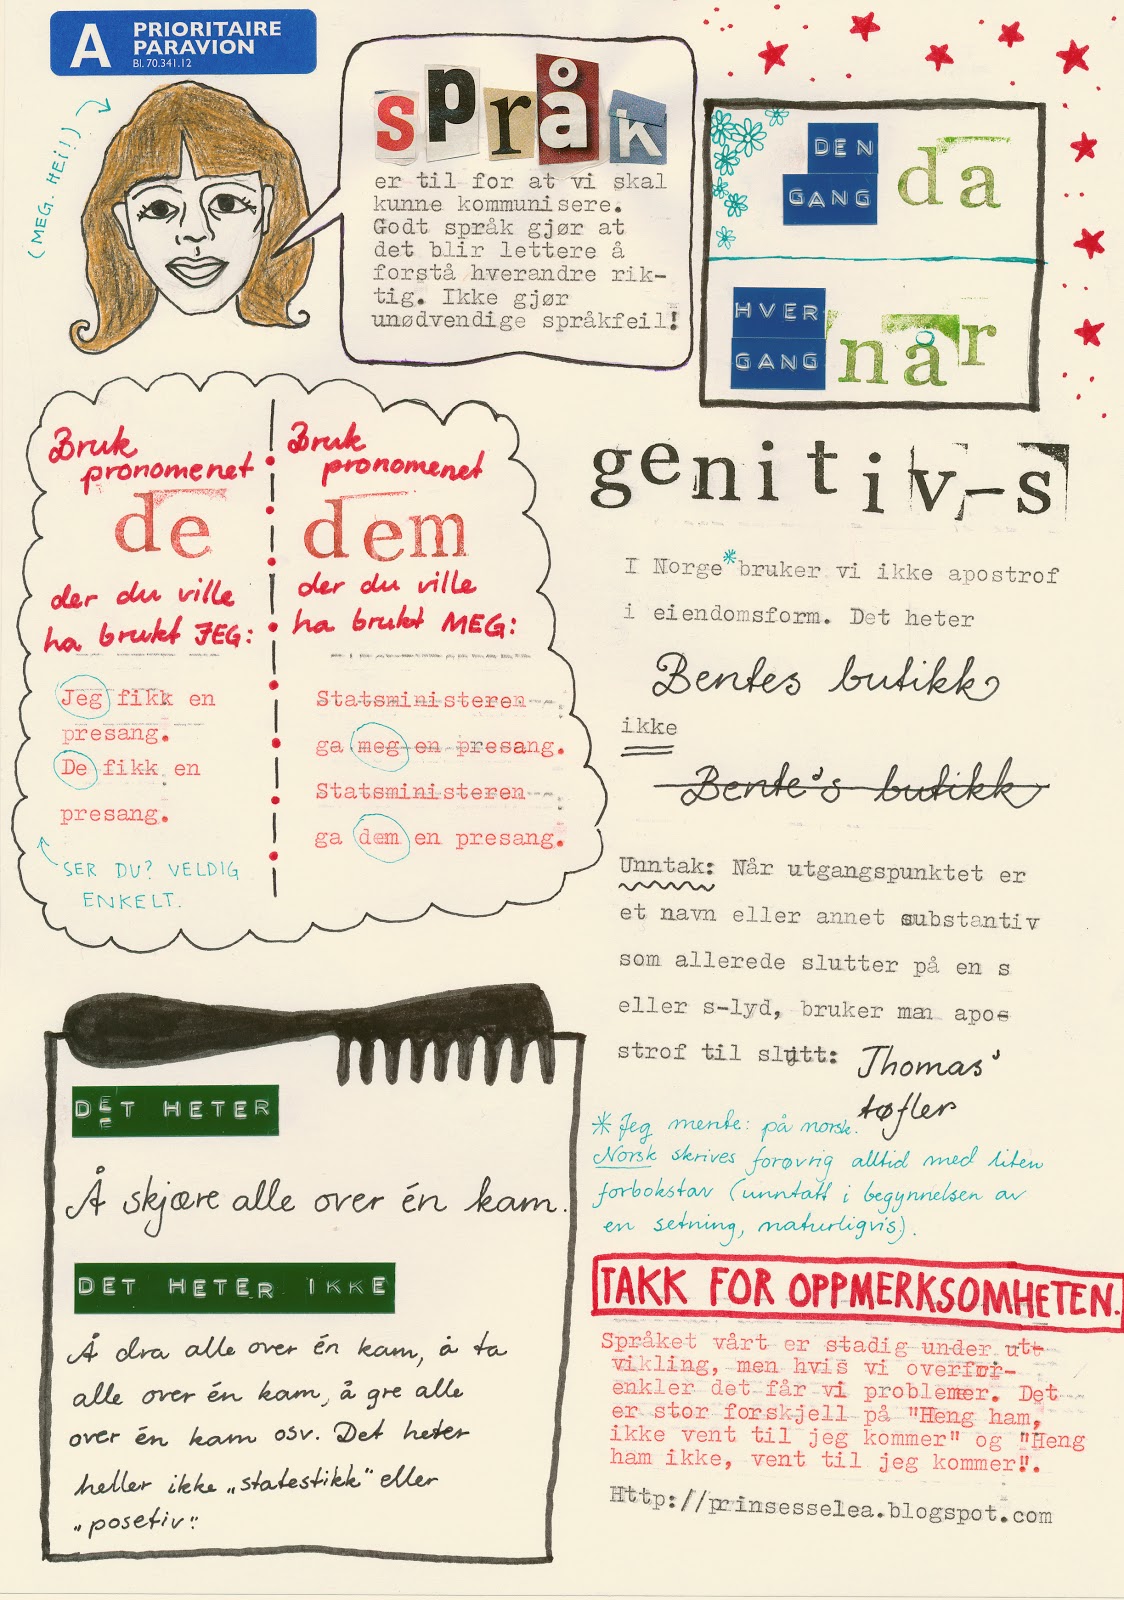 A PRIORITAIRE
PARAVION
Bl. 70.341.12
(MEG. HEI!)
språk
er til for at vi skal
kunne kommunisere.
Godt språk gjør at
det blir lettere å
forstå hverandre rik-
tig. Ikke gjør
unødvendige språkfeil!
DEN
GANG
da
HVER
GANG
når
Bruk
pronomenet
de
der du ville
ha brukt JEG:
Jeg fikk en
presang.
De fikk en
presang.
SER DU? VELDIG
ENKELT.
Bruk
pronomenet
dem
der du ville
ha brukt MEG:
Statsministeren
ga meg en presang.
Statsministeren
ga dem en presang.
genitiv-s
I Norge* bruker vi ikke apostrof
i eiendomsform. Det heter
Bentes butikk
ikke
Bente's butikk
Unntak: Når utgangspunktet er
et navn eller annet substantiv
som allerede slutter på en s
eller s-lyd, bruker man apo-
strof til slutt: Thomas'
tøfler
* Jeg mente: på norsk.
Norsk skrives forøvrig alltid med liten
forbokstav (unntatt i begynnelsen av
en setning, naturligvis).
DET HETER
Å skjære alle over én kam.
DET HETER IKKE
Å dra alle over én kam, å ta
alle over én kam, å gre alle
over én kam osv. Det heter
heller ikke „statestikk" eller
„posetiv".
TAKK FOR OPPMERKSOMHETEN.
Språket vårt er stadig under ut-
vikling, men hvis vi overfor-
enkler det får vi problemer. Det
er stor forskjell på "Heng ham,
ikke vent til jeg kommer" og "Heng
ham ikke, vent til jeg kommer!".
Http://prinsesselea.blogspot.com